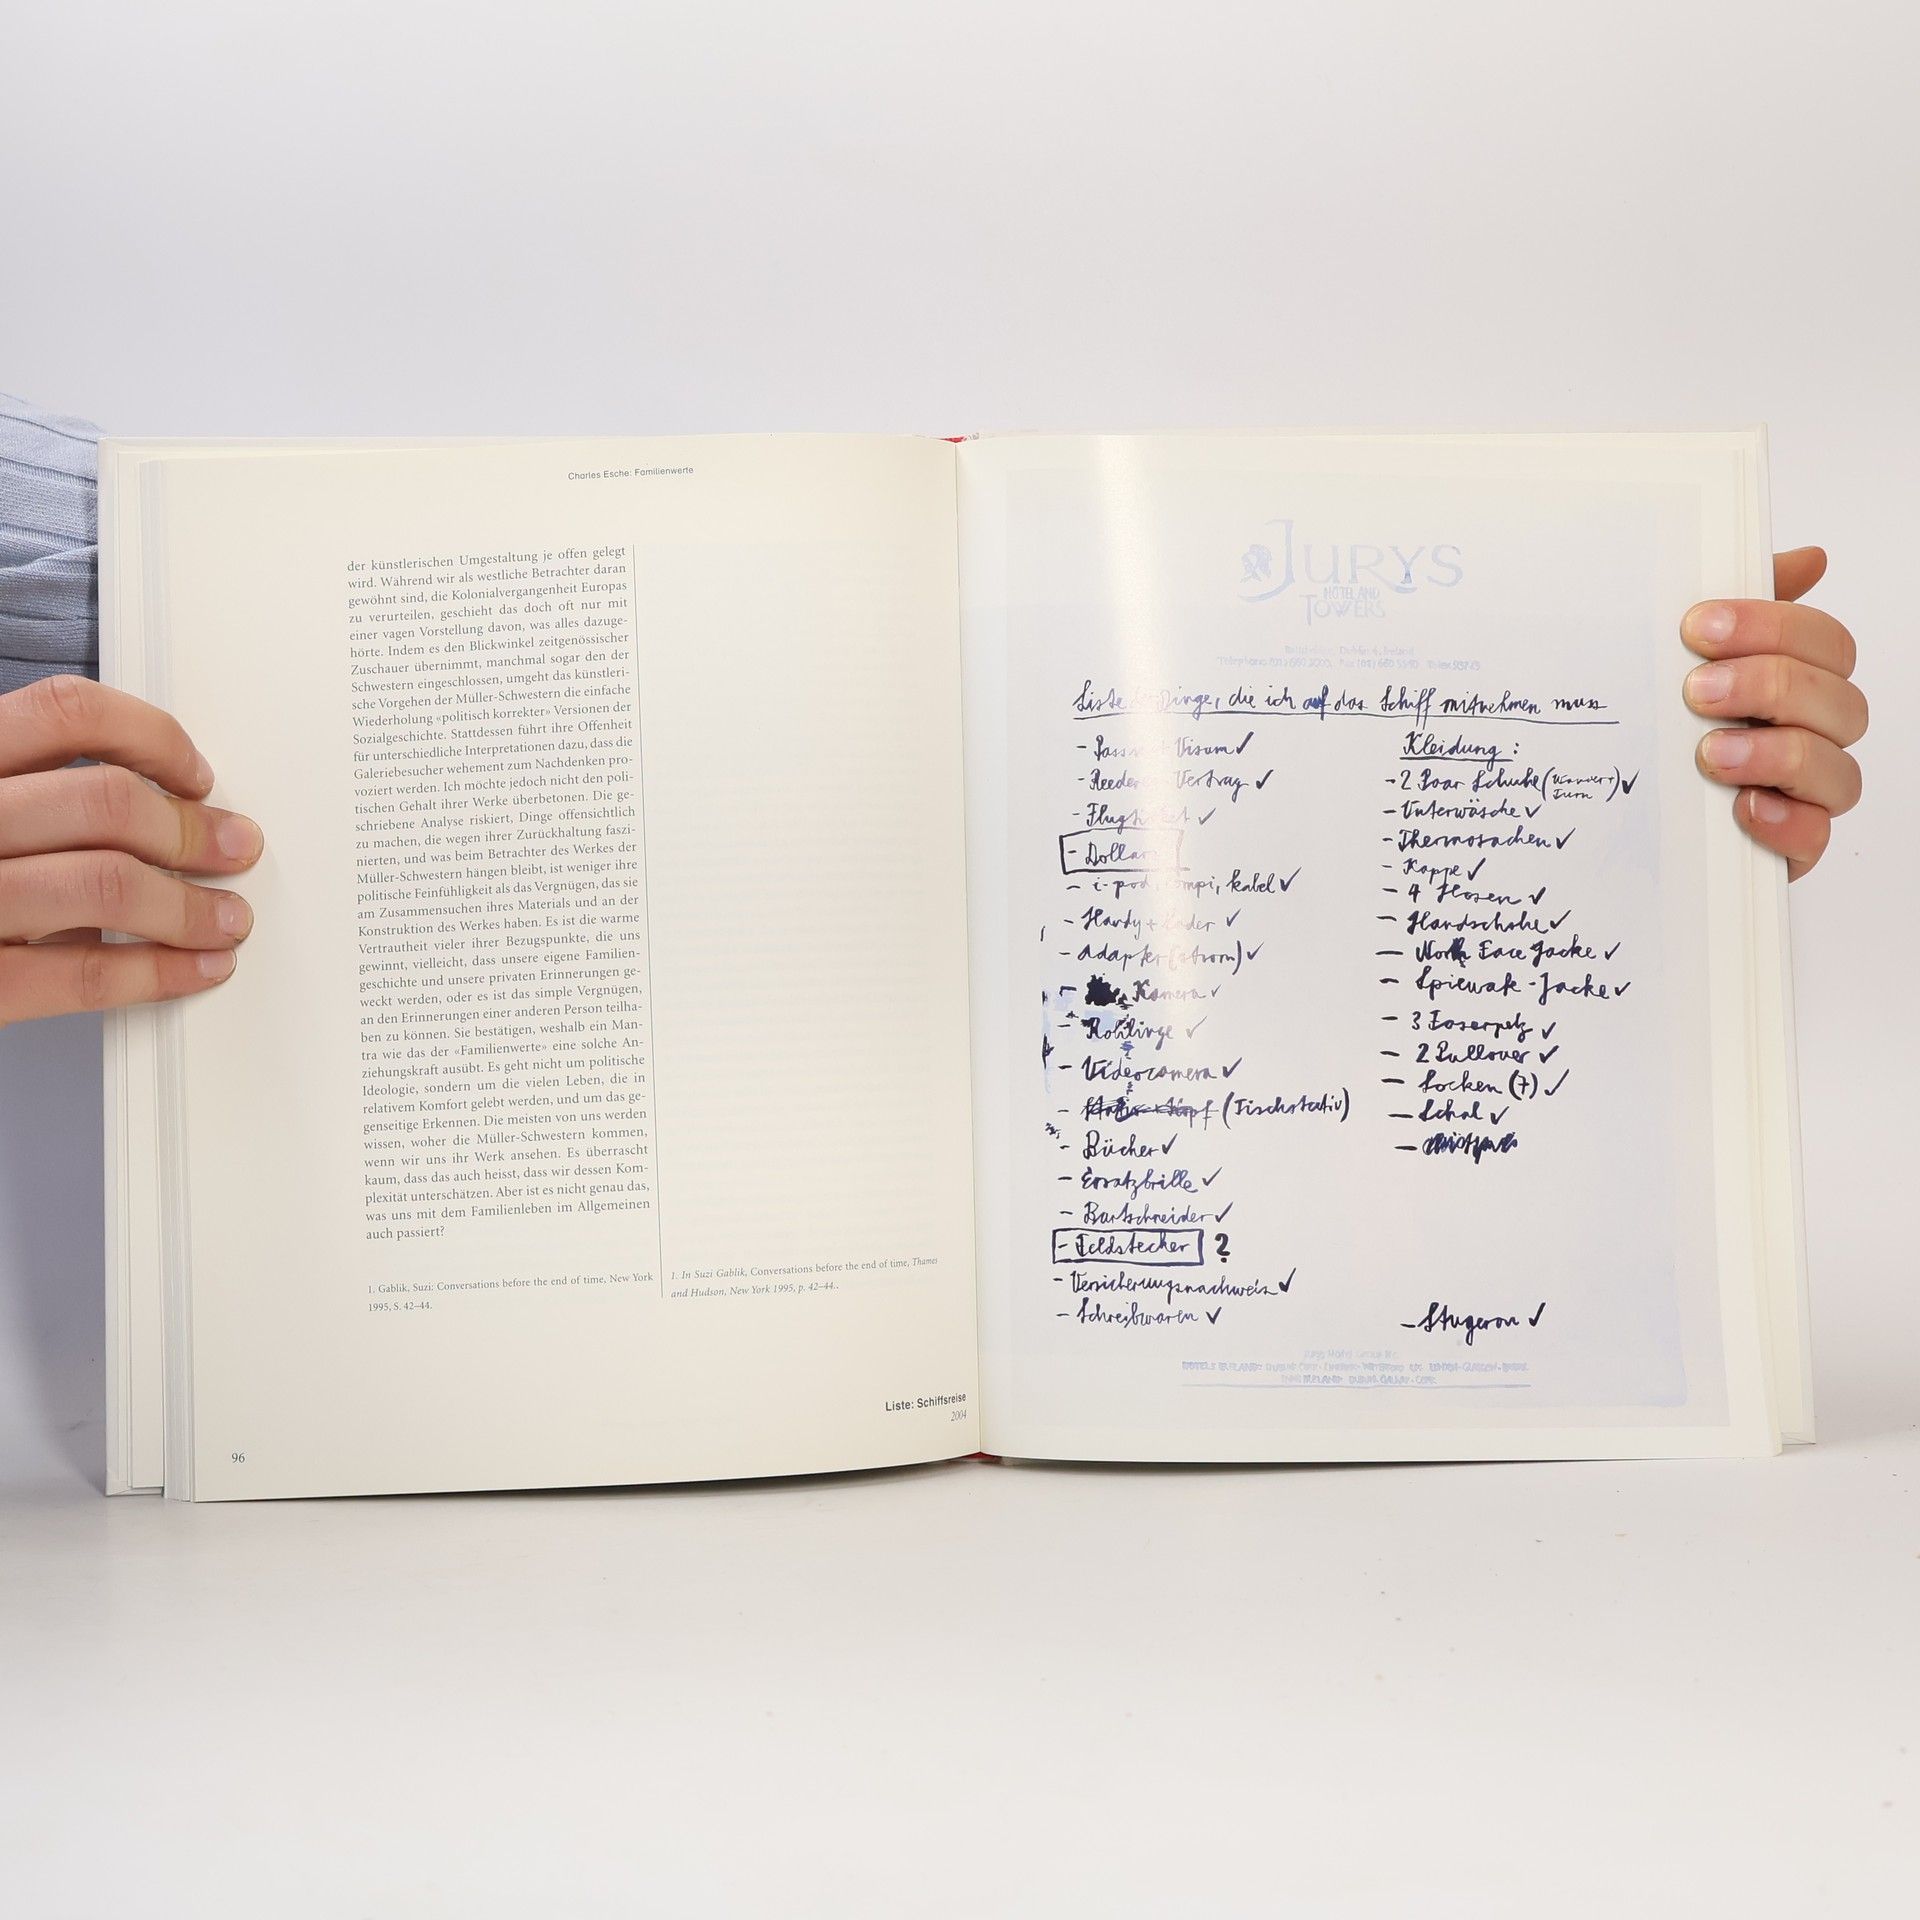 Charles Esche: Familienwerte
der künstlerischen Umgestaltung je offen gelegt
wird. Während wir als westliche Betrachter daran
gewöhnt sind, die Kolonialvergangenheit Europas
zu verurteilen, geschieht das doch oft nur mit
einer vagen Vorstellung davon, was alles dazuge-
hörte. Indem es den Blickwinkel zeitgenössischer
Zuschauer übernimmt, manchmal sogar den der
Schwestern eingeschlossen, umgeht das künstleri-
sche Vorgehen der Müller-Schwestern die einfache
Wiederholung «politisch korrekter» Versionen der
Sozialgeschichte. Stattdessen führt ihre Offenheit
für unterschiedliche Interpretationen dazu, dass die
Galeriebesucher wehement zum Nachdenken pro-
voziert werden. Ich möchte jedoch nicht den poli-
tischen Gehalt ihrer Werke überbetonen. Die ge-
schriebene Analyse riskiert, Dinge offensichtlich
zu machen, die wegen ihrer Zurückhaltung faszi-
nierten, und was beim Betrachter des Werkes der
Müller-Schwestern hängen bleibt, ist weniger ihre
politische Feinfühligkeit als das Vergnügen, das sie
am Zusammensuchen ihres Materials und an der
Konstruktion des Werkes haben. Es ist die warme
Vertrautheit vieler ihrer Bezugspunkte, die uns
gewinnt, vielleicht, dass unsere eigene Familien-
geschichte und unsere privaten Erinnerungen ge-
weckt werden, oder es ist das simple Vergnügen,
an den Erinnerungen einer anderen Person teilha-
ben zu können. Sie bestätigen, weshalb ein Man-
tra wie das der «Familienwerte» eine solche An-
ziehungskraft ausübt. Es geht nicht um politische
Ideologie, sondern um die vielen Leben, die in
relativem Komfort gelebt werden, und um das ge-
genseitige Erkennen. Die meisten von uns werden
wissen, woher die Müller-Schwestern kommen,
wenn wir uns ihr Werk ansehen. Es überrascht
kaum, dass das auch heisst, dass wir dessen Kom-
plexität unterschätzen. Aber ist es nicht genau das,
was uns mit dem Familienleben im Allgemeinen
auch passiert?
1. Gablik, Suzi: Conversations before the end of time, New York
1995, S. 42–44.
1. In Suzi Gablik, Conversations before the end of time, Thames
and Hudson, New York 1995, p. 42–44..
Liste: Schiffsreise
2004
96
JURYS
HOTEL AND
TOWERS
Dublin 4, Ireland
Liste der Dinge, die ich auf das Schiff mitnehmen muss
- Visum ✓
- Vertrag ✓
- Flugticket ✓
- Dollars
- i-pod, kabel ✓
- Handy + Lader ✓
- Adapter (Strom) ✓
- Kamera ✓
- Rohlinge ✓
- Videocamera ✓
- (Tischstativ)
- Bücher ✓
- Ersatzbrille ✓
- Bartschneider ✓
- Feldstecher ?
- Versicherungsnachweis ✓
- Schreibwaren ✓
Kleidung:
- 2 Paar Schuhe (Wander + Turn) ✓
- Unterwäsche ✓
- Thermosachen ✓
- Kappe ✓
- 4 Hosen ✓
- Handschuhe ✓
- North Face Jacke ✓
- Spiewak - Jacke ✓
- 3 Faserpelz ✓
- 2 Pullover ✓
- Socken (7) ✓
- Schal ✓
- Stugeron ✓